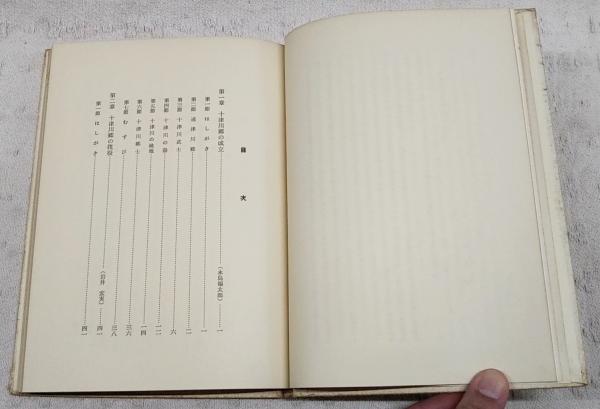 目次
第一章 十津川郷の成立……(永島福太郎)……一
第一節 はしがき……一
第二節 遠津川郷……二
第三節 十津川武士……六
第四節 十津川の
第五節 十津川の
第六節 十津川郷士……三六
第七節 むすび……三八
第二章 十津川郷の
第一節 はしがき……四一